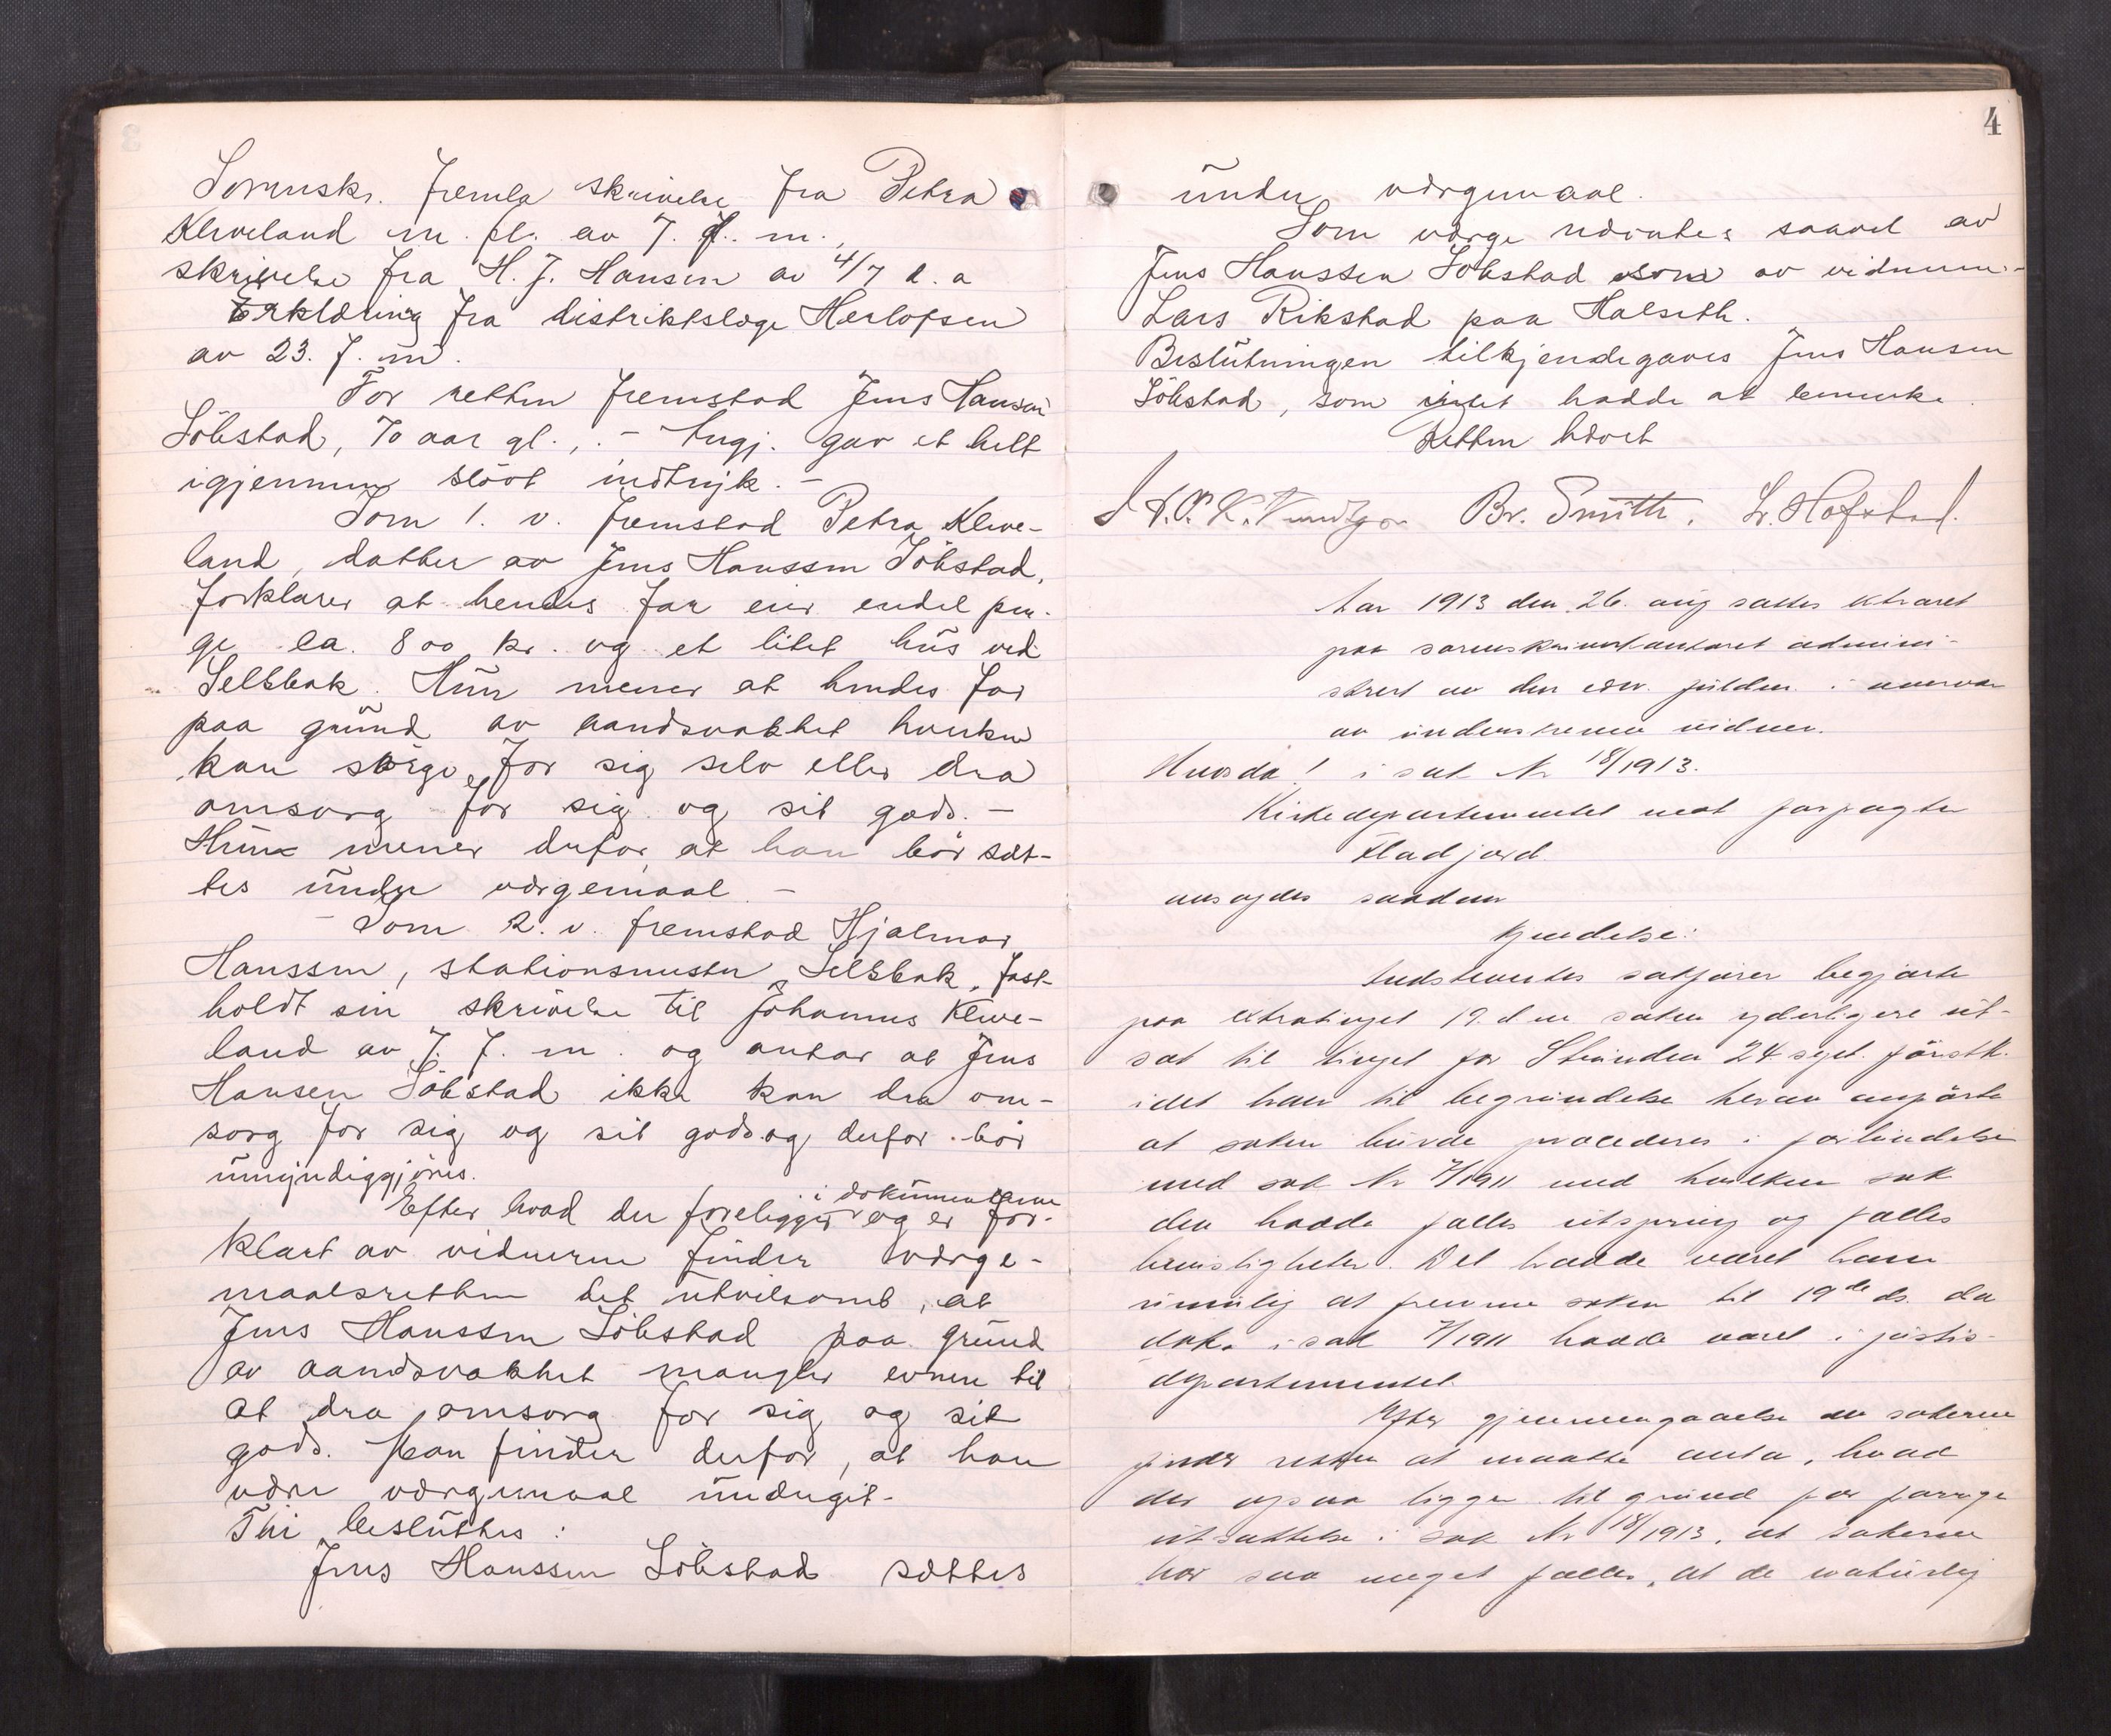 Sorenskr. fremla skrivelse fra Petra
Kleveland m. fl. av 7. f. m.,
skrivelse fra H. J. Hansen av 4/7 d. a
Erklæring fra distriktslæge Herlofsen
av 23. f. m.
For retten fremstod Jens Hansen
Söbstad, 70 aar gl., . – Angj. gav et helt
igjennem slövt indtryk. –
Som 1. v. fremstod Petra Kleve-
land, datter av Jens Hanssen Söbstad,
forklarer at hendes far eier endel pen-
ge ca. 800 kr. og et litet hus ved
Selsbak. Hun mener at hendes far
paa grund av aandsvakhet hverken
kan sörge for sig selv eller dra
omsorg for sig og sit gods. –
Hun mener derfor at han bör sæt-
tes under værgemaal. –
– Som 2. v. fremstod Hjalmar
Hanssen, stationsmester, Selsbak, fast-
holdt sin skrivelse til Johannes Kleve-
land av 7. f. m. og antar at Jens
Hansen Söbstad ikke kan dra om-
sorg for sig og sit gods og derfor bör
umyndiggjöres.
Efter hvad der foreligger i dokumenterne og er for-
klart av vidnerne finder værge-
maalsretten det utvilsomt, at
Jens Hanssen Söbstad paa grund
av aandsvakhet mangler evnen til
at dra omsorg for sig og sit
gods. Man finder derfor, at han
være værgemaal undergit.
Thi besluttes:
Jens Hanssen Söbstad sættes
4
under værgemaal.
Som værge nævntes saavel av
Jens Hanssen Söbstad som av vidnerne-
Lars Rikstad paa Halseth.
Beslutningen tilkjendegaves Jens Hansen
Söbstad, som intet hadde at bemerke.
Retten hævet
Br. Smith. L. Hofstad.
Aar 1913 den 26. aug sattes ekstraret
paa sorenskriverkontoret admini-
strert av den edsv. fuldm. i nærvær
av underskrevne vidner.
Hvorda! i sak Nr 18/1913.
Kirkedepartementet mot forpagter
Fladjord
avsagdes saadan
Kjendelse:
Indstevntes sakförer begjærte
paa extratinget 19. d m saken yderligere ut-
sat til tinget for Strinden 24. sept. förstk.
idet han til begrundelse herav anförte
at saken burde procederes i forbindelse
med sak Nr 7/1911 med hvilken sak
den hadde fælles utspring og fælles
bevisligheter. Det hadde været ham
umulig at fremme saken til 19de ds. da
dok. i sak 7/1911 hadde været i justis-
departementet.
Efter gjennemgaaelse av sakerne
finder retten at maatte anta, hvad
der ogsaa ligger til grund for forrige
utsættelse i sak Nr 18/1913, at sakerne
har saa meget fælles, at de naturlig